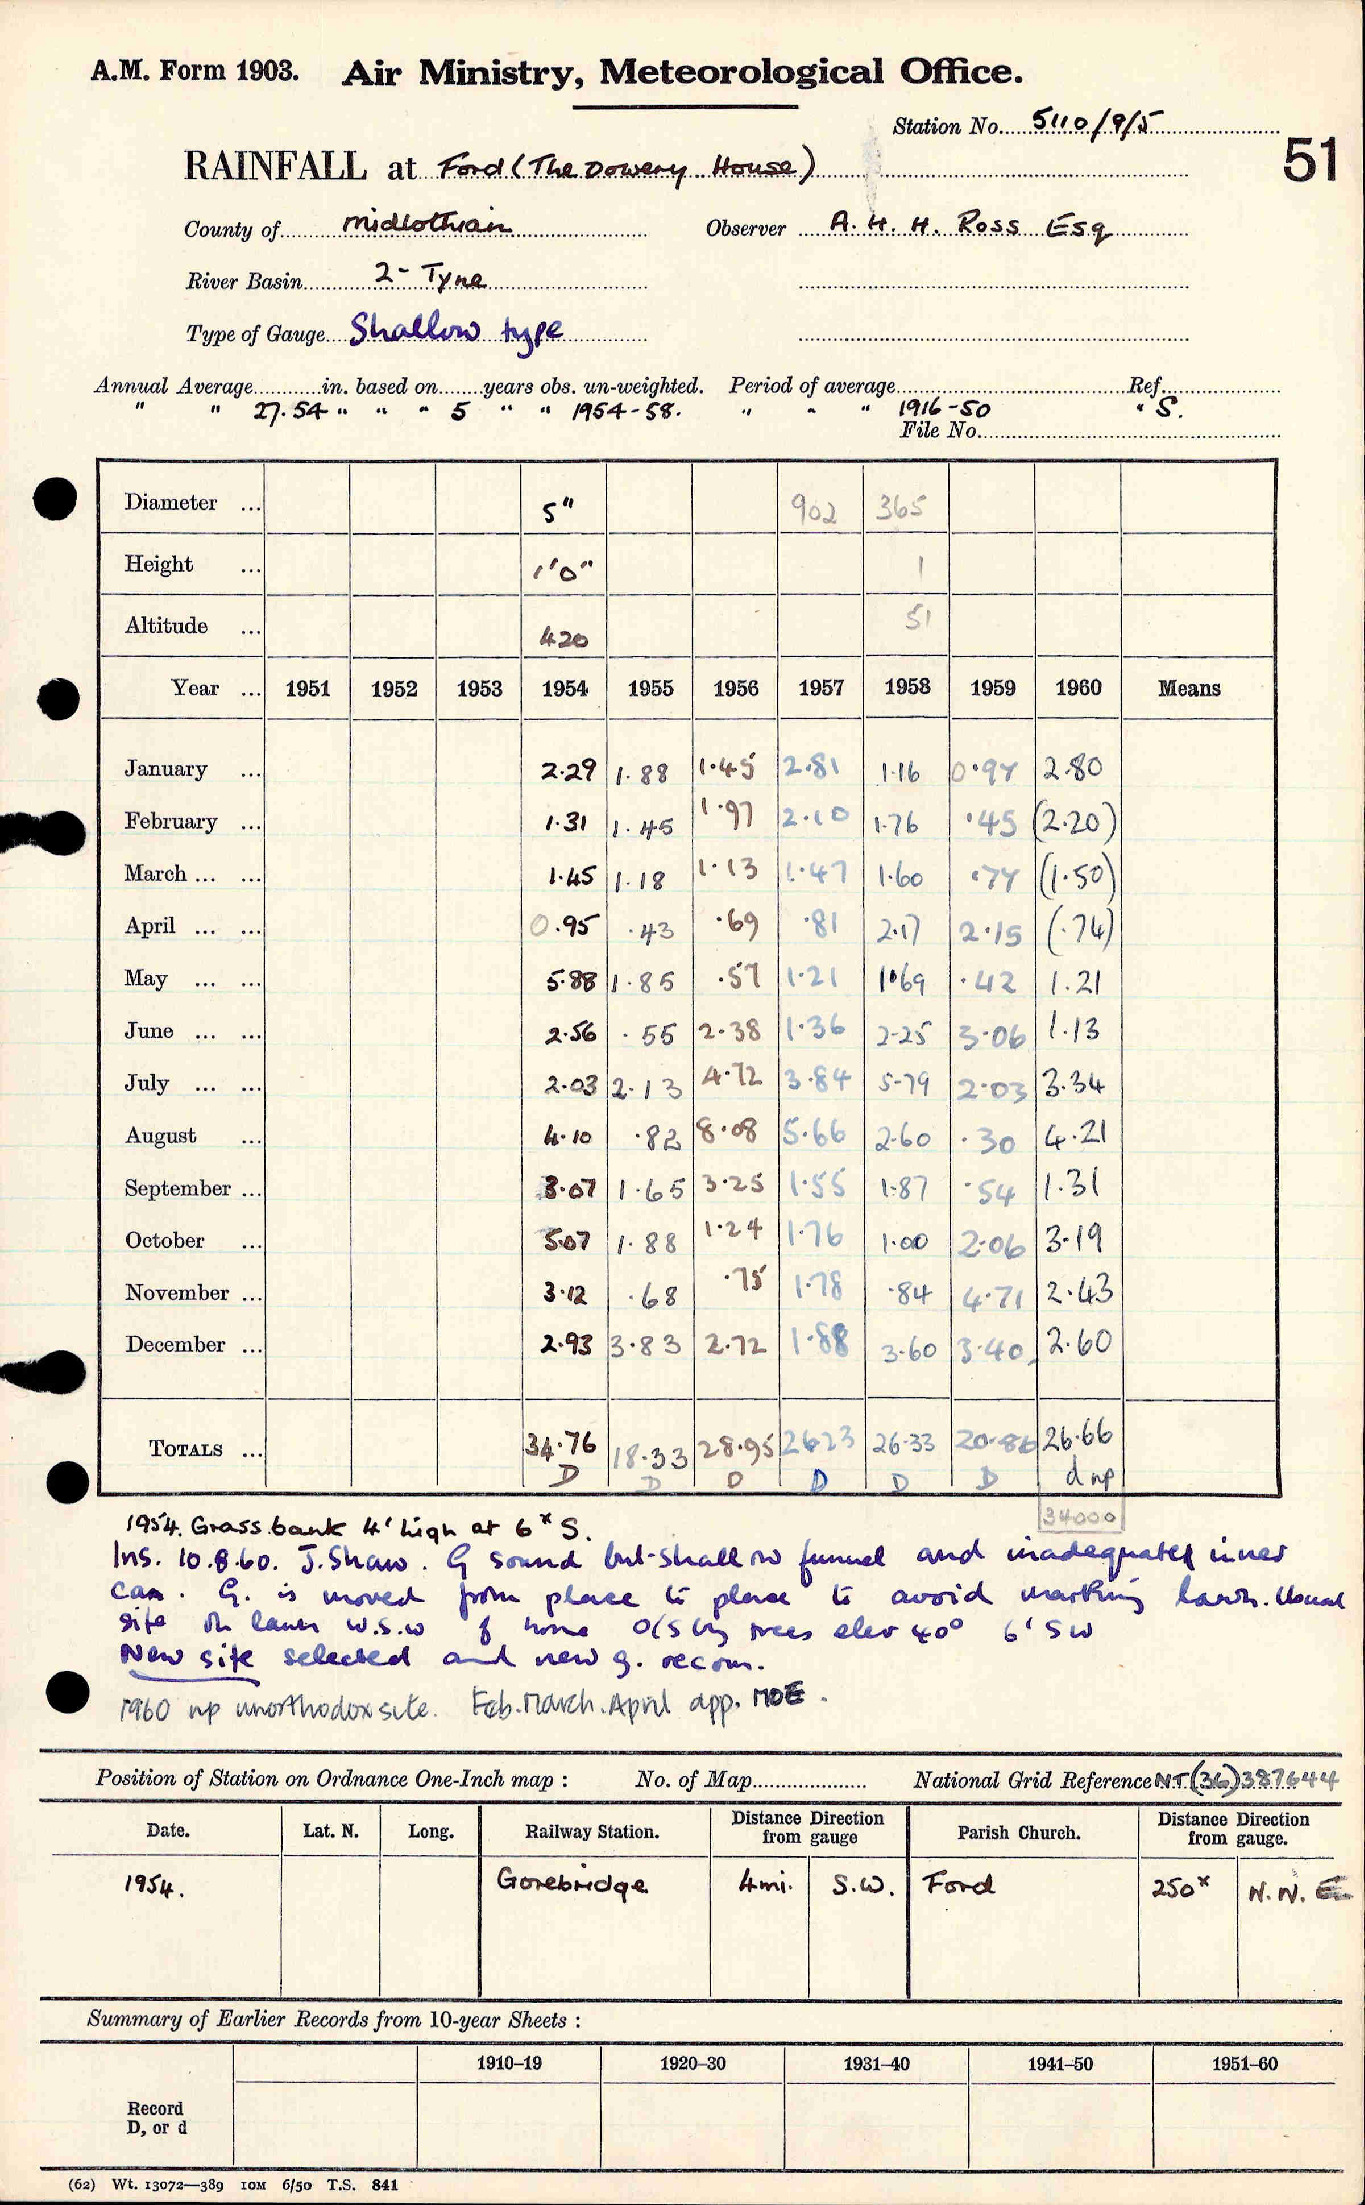 A.M. Form 1903. Air Ministry, Meteorological Office.
Station No. 5110/9/5
51
RAINFALL at Ford (The Dowery House)
County of Midlothian Observer A. H. H. Ross Esq
River Basin 2 - Tyne
Type of Gauge Shallow type
Annual Average in. based on years obs. un-weighted. Period of average Ref.
" " 27.54 " " " 5 " " 1954-58. " " " 1916-50 " S.
File No.
Diameter ... 5" 902 365
Height ... 1'0" 1
Altitude ... 420 51
Year ... 1951 1952 1953 1954 1955 1956 1957 1958 1959 1960 Means
January ... 2.29 1.88 1.45 2.81 1.16 0.97 2.80
February ... 1.31 1.45 1.97 2.10 1.76 .45 (2.20)
March ... ... 1.45 1.18 1.13 1.47 1.60 .77 (1.50)
April ... ... 0.95 .43 .69 .81 2.17 2.15 (.74)
May ... ... 5.88 1.85 .57 1.21 1.69 .42 1.21
June ... ... 2.56 .55 2.38 1.36 2.25 3.06 1.13
July ... ... 2.03 2.13 4.72 3.84 5.79 2.03 3.34
August ... 4.10 .82 8.08 5.66 2.60 .30 4.21
September ... 3.07 1.65 3.25 1.55 1.87 .54 1.31
October ... 5.07 1.88 1.24 1.76 1.00 2.06 3.19
November ... 3.12 .68 .75 1.78 .84 4.71 2.43
December ... 2.93 3.83 2.72 1.88 3.60 3.40 2.60
TOTALS ... 34.76 18.33 28.95 26.23 26.33 20.86 26.66
D D D D D D d np
34000
1954. Grass bank 4' high at 6x S.
Ins. 10.8.60. J. Shaw. G sound but shallow funnel and inadequate inner
can. G. is moved from place to place to avoid marking lawn. Usual
site on lawn W.S.W of house O/S by trees elev 40° 6' SW
New site selected and new g. recom.
1960 np unorthodox site. Feb. March. April app. MOE.
Position of Station on Ordnance One-Inch map : No. of Map National Grid Reference NT (36) 387644
Date. Lat. N. Long. Railway Station. Distance Direction from gauge Parish Church. Distance Direction from gauge.
1954. Gorebridge 4mi. S.W. Ford 250x N.N.E
Summary of Earlier Records from 10-year Sheets :
1910–19 1920–30 1931–40 1941–50 1951–60
Record
D, or d
(62) Wt. 13072—389 10M 6/50 T.S. 841